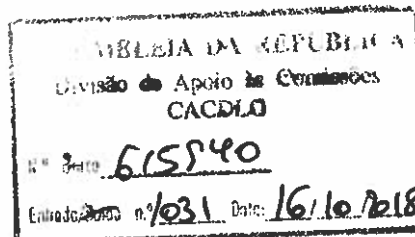 ASSEMBLEIA DA REPÚBLICA
Divisão de Apoio às Comissões
CACDLG
N.º Único 615940
Entrada/Saída n.º 1031 Data: 16/10/2018